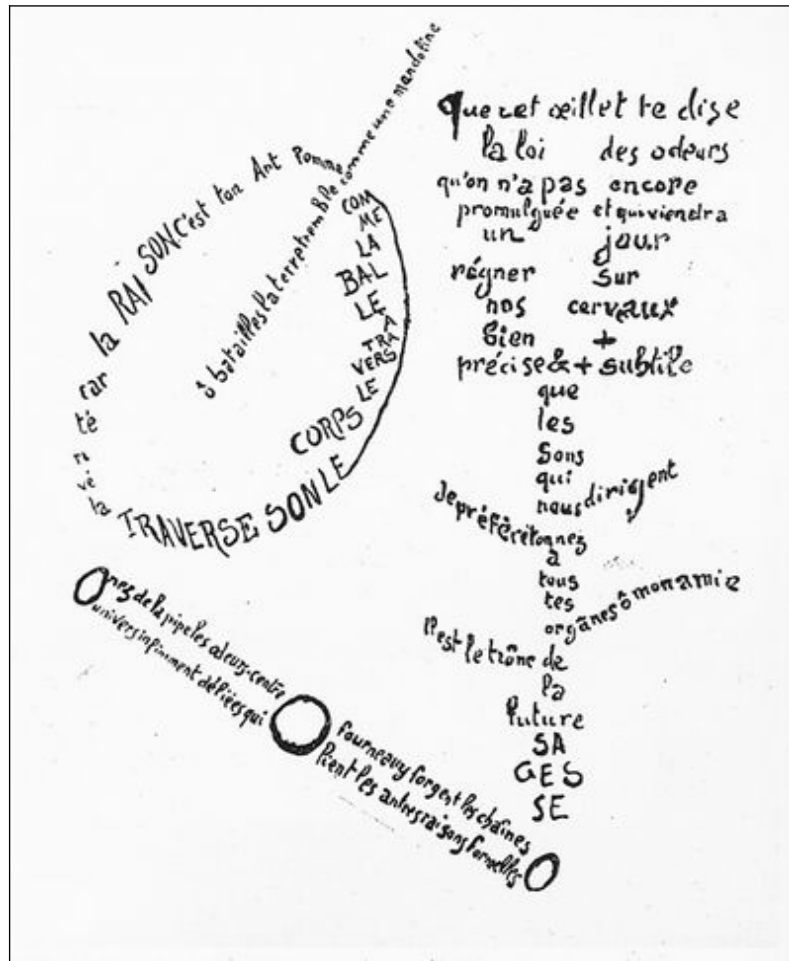 ô batailles la terre tremble comme une mandoline
COM
ME
LA
BAL
LE
À
TRA
VERS
LE
CORPS
LE SON TRAVERSE
la
vé
ri
té
car
la RAISON c'est ton Art Femme
que cet œillet te dise
la loi des odeurs
qu'on n'a pas encore
promulguée et qui viendra
un jour
régner sur
nos cerveaux
bien +
précise & + subtile
que
les
sons
qui
nous dirigent
Je préfère ton nez
à
tous
tes
organes ô mon amie
Il est le trône de
la
future
SA
GES
SE
O nez de la pipe les odeurs-centre
fourneau y forgent les chaînes
univers infiniment déliées qui
lient les autres raisons formelles